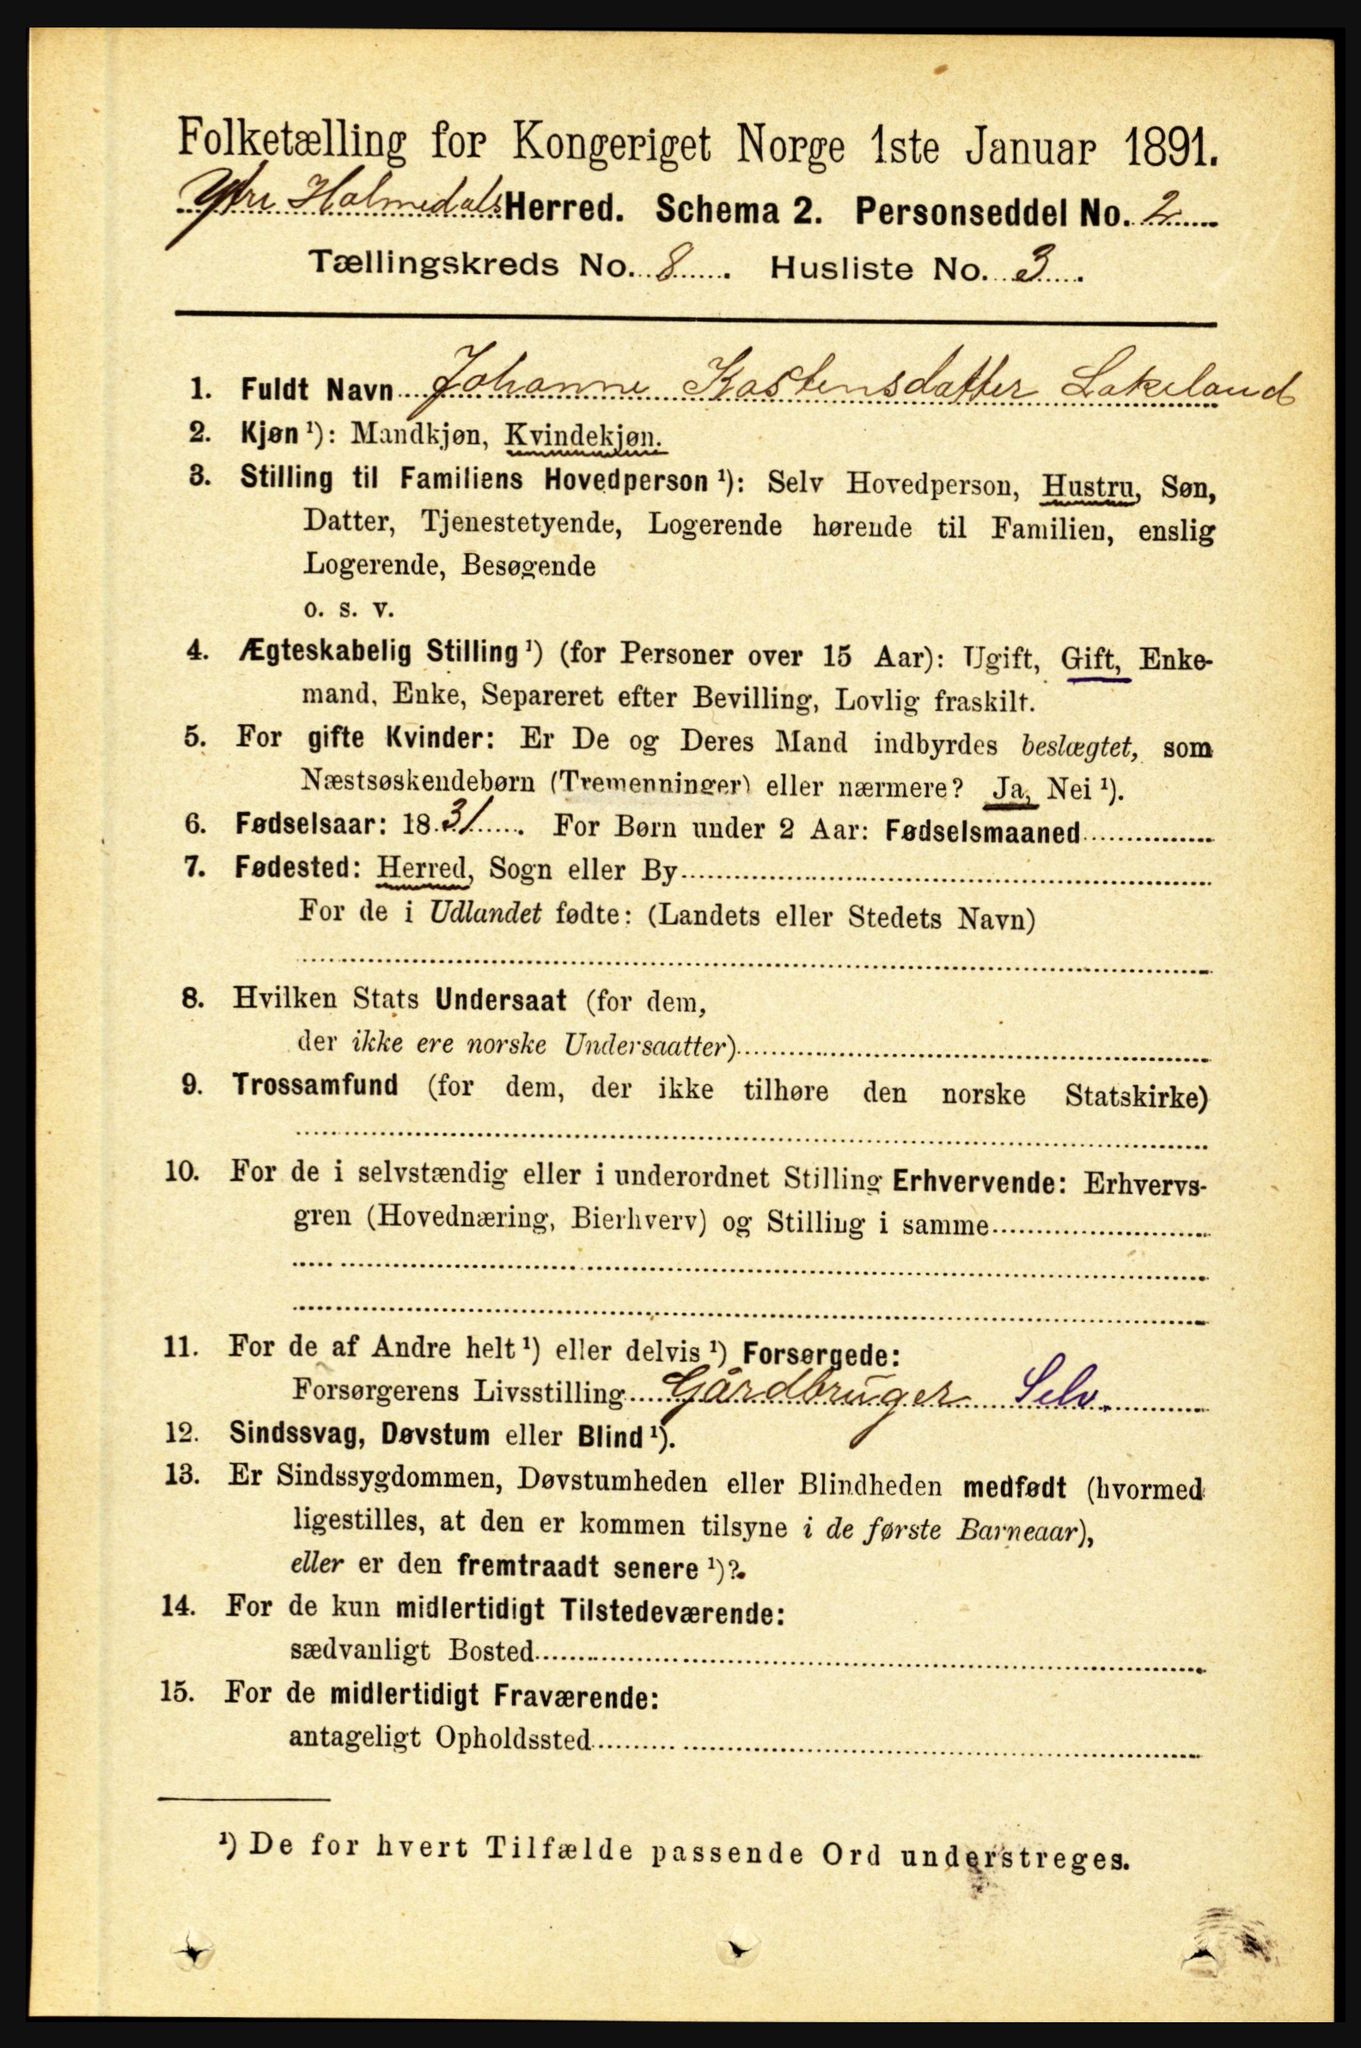 Folketælling for Kongeriget Norge 1ste Januar 1891.
Ytre Holmedals Herred. Schema 2. Personseddel No. 2
Tællingskreds No. 8. Husliste No. 3.
1. Fuldt Navn Johanne Kastensdatter Lakeland
2. Kjøn ¹): Mandkjøn, Kvindekjøn.
3. Stilling til Familiens Hovedperson ¹): Selv Hovedperson, Hustru, Søn,
Datter, Tjenestetyende, Logerende hørende til Familien, enslig
Logerende, Besøgende
o. s. v.
4. Ægteskabelig Stilling ¹) (for Personer over 15 Aar): Ugift, Gift, Enke-
mand, Enke, Separeret efter Bevilling, Lovlig fraskilt.
5. For gifte Kvinder: Er De og Deres Mand indbyrdes beslægtet, som
Næstsøskendebørn (Tremenninger) eller nærmere? Ja, Nei ¹).
6. Fødselsaar: 1831. For Børn under 2 Aar: Fødselsmaaned
7. Fødested: Herred, Sogn eller By
For de i Udlandet fødte: (Landets eller Stedets Navn)
8. Hvilken Stats Undersaat (for dem,
der ikke ere norske Undersaatter)
9. Trossamfund (for dem, der ikke tilhøre den norske Statskirke)
10. For de i selvstændig eller i underordnet Stilling Erhvervende: Erhvervs-
gren (Hovednæring, Bierhverv) og Stilling i samme
11. For de af Andre helt ¹) eller delvis ¹) Forsørgede:
Forsørgerens Livsstilling Gårdbruger Selv.
12. Sindssvag, Døvstum eller Blind ¹).
13. Er Sindssygdommen, Døvstumheden eller Blindheden medfødt (hvormed
ligestilles, at den er kommen tilsyne i de første Barneaar),
eller er den fremtraadt senere ¹)?
14. For de kun midlertidigt Tilstedeværende:
sædvanligt Bosted
15. For de midlertidigt Fraværende:
antageligt Opholdssted
¹) De for hvert Tilfælde passende Ord understreges.